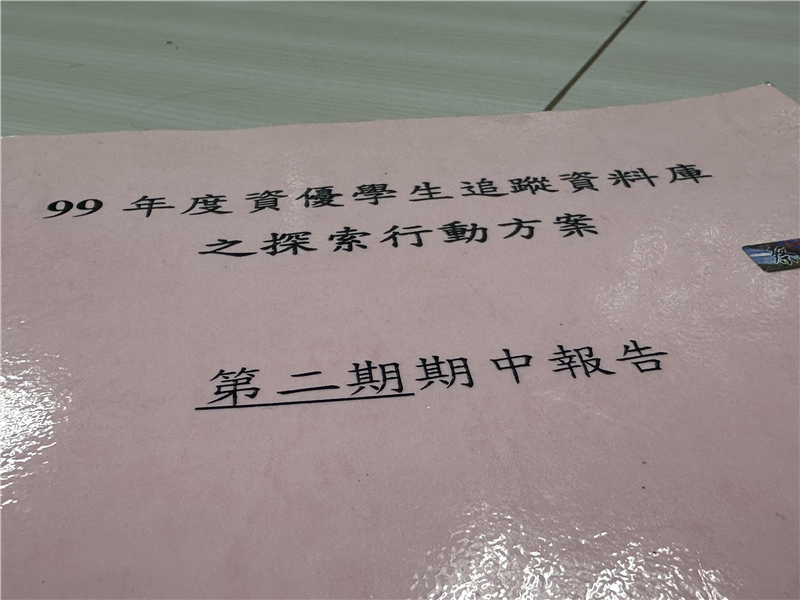 99 年度資優學生追蹤資料庫
之探索行動方案
第二期期中報告